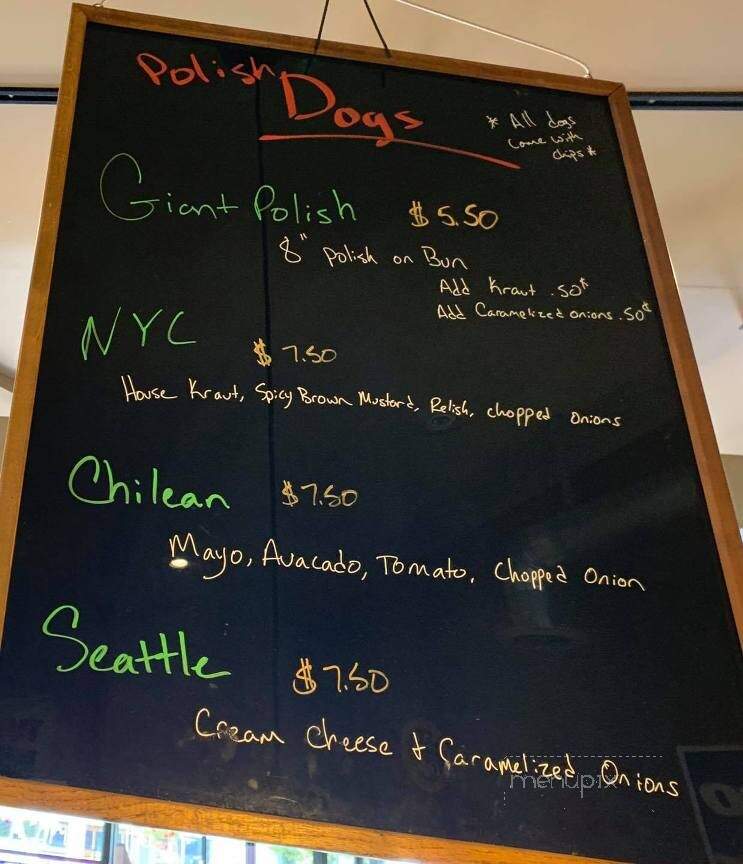 Polish Dogs
* All dogs
come with
chips *
Giant Polish $5.50
8" Polish on Bun
Add Kraut .50¢
Add Caramelized onions .50¢
NYC $7.50
House Kraut, Spicy Brown Mustard, Relish, chopped onions
Chilean $7.50
Mayo, Avacado, Tomato, Chopped Onion
Seattle $7.50
Cream Cheese + Caramelized Onions
menupix